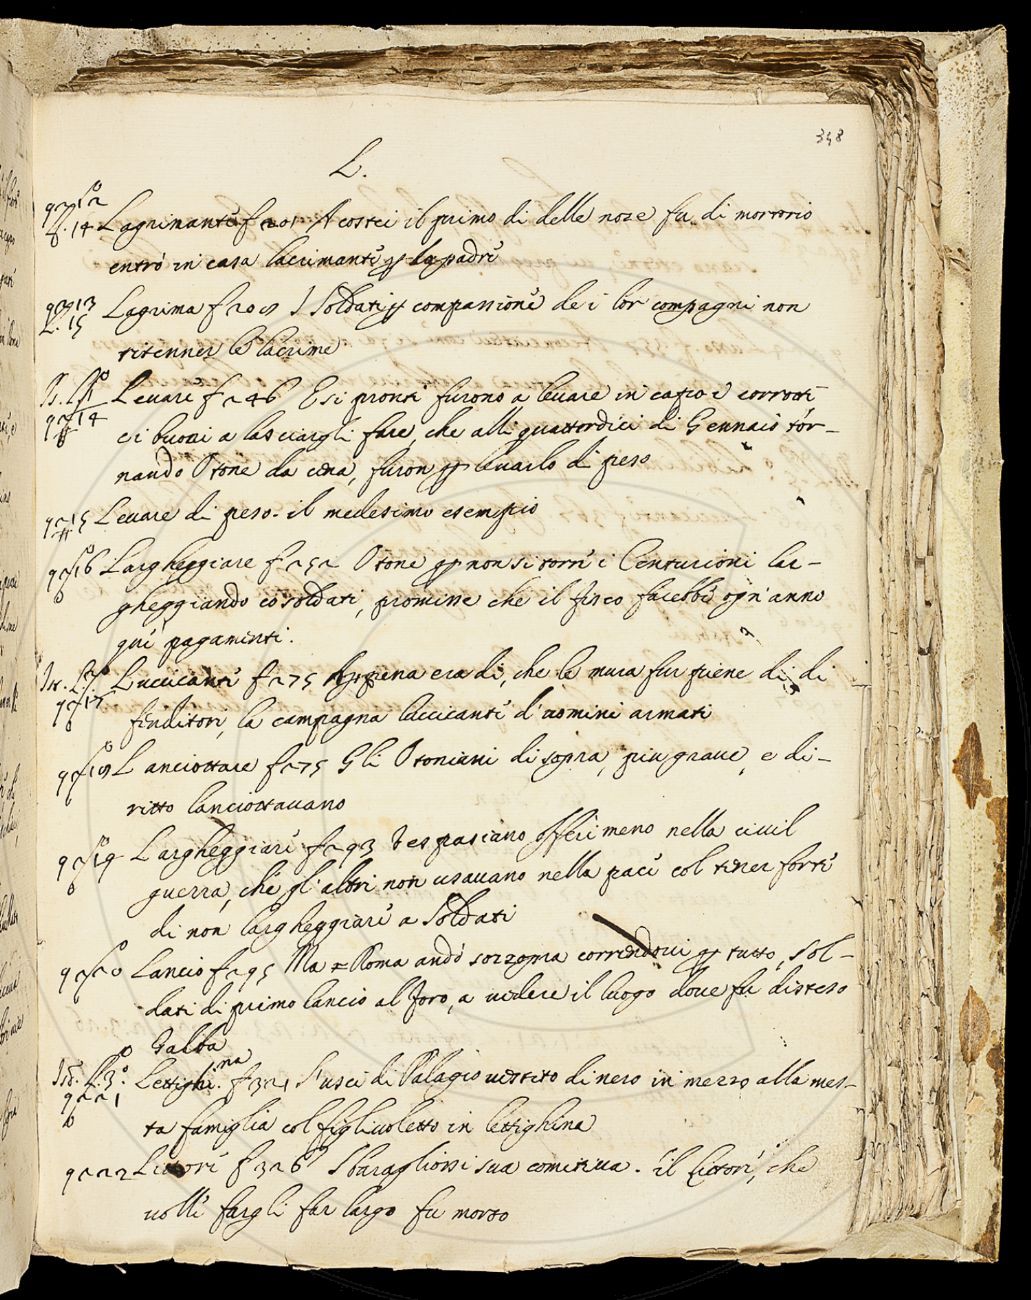 348
L.
Lagrimante f 201 A costei il primo di delle noze fu di mortorio
entrò in casa lacrimante  la padre
Lagrima f 208 I Soldati  compassione de i lor compagni non
ritenner le lacrime
Levare f 246 E si pronti furono a levare in capo i corrotti
e i buoni a lasciargli fare, che alli quattordici di Gennaio tor-
nando Otone da cena, furon  levarlo di peso
Levare di peso. il medesimo esempio
Largheggiare f 252 Otone  non si torre i Centurioni lar-
gheggiando co soldati, promisse che il fisco farebbe ogn'anno
que pagamenti.
Luccicante f 275 Appena era di, che le mura fur piene di di
finditori, la campagna luccicante d'uomini armati
Lanciottare f 275 Gli Otoniani di sopra, piu grave, e di-
ritto lanciottavano
Largheggiare f 293 Vespasiano offerì meno nella civil
guerra, che gl'altri non usavano nella pace col tener forte
di non largheggiare a Soldati
Lancio f 295 Ma a Roma andò sozzopra correndovi  tutto, Sol-
dati di primo lancio al foro, a vedere il luogo dove fu disteso
Galba
Lettighina f 321 S'uscì di Palagio vestito di nero in mezzo alla mes-
ta famiglia col figliuoletto in lettighina
Littore f 326 Sbaragliossi sua comitiva. il Littore, che
volle fargli far largo fu morto